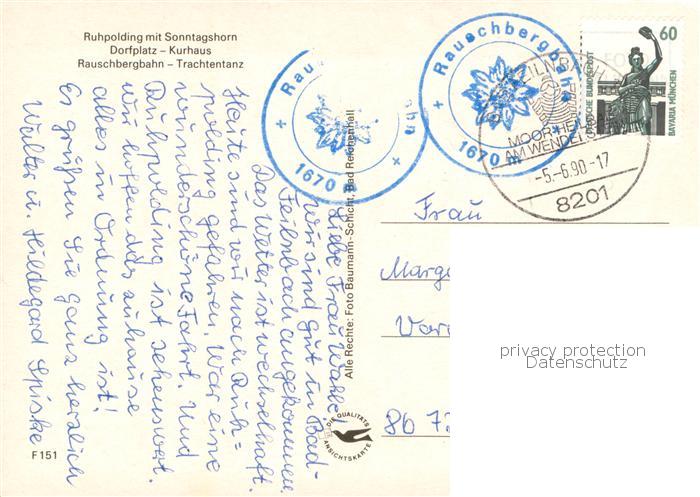 Ruhpolding mit Sonntagshorn
Dorfplatz – Kurhaus
Rauschbergbahn – Trachtentanz
Liebe Frau Wahle!
wir sind gut in Bad-
Feilnbach angekommen.
Das Wetter ist wechselhaft.
Heute sind wir nach Ruh=
polding gefahren. War eine
wunderschöne Fahrt. Und
Ruhpolding ist sehenswert.
Wir hoffen das zuhause
alles in Ordnung ist!
Es grüßen Sie ganz herzlich
Walter u. Hildegard Spiske
F 151
Alle Rechte: Foto Baumann-Schicht, Bad Reichenhall
DIE QUALITÄTS
ANSICHTSKARTE
+ Rau hn +
1670 m
+ Rauschbergbahn +
1670 m
MOORHEI
AM WENDEL
-5.-6.90-17
8201
60
DEUTSCHE BUNDESPOST
BAVARIA MÜNCHEN
Frau
Marg
Var
86 73
privacy protection
Datenschutz